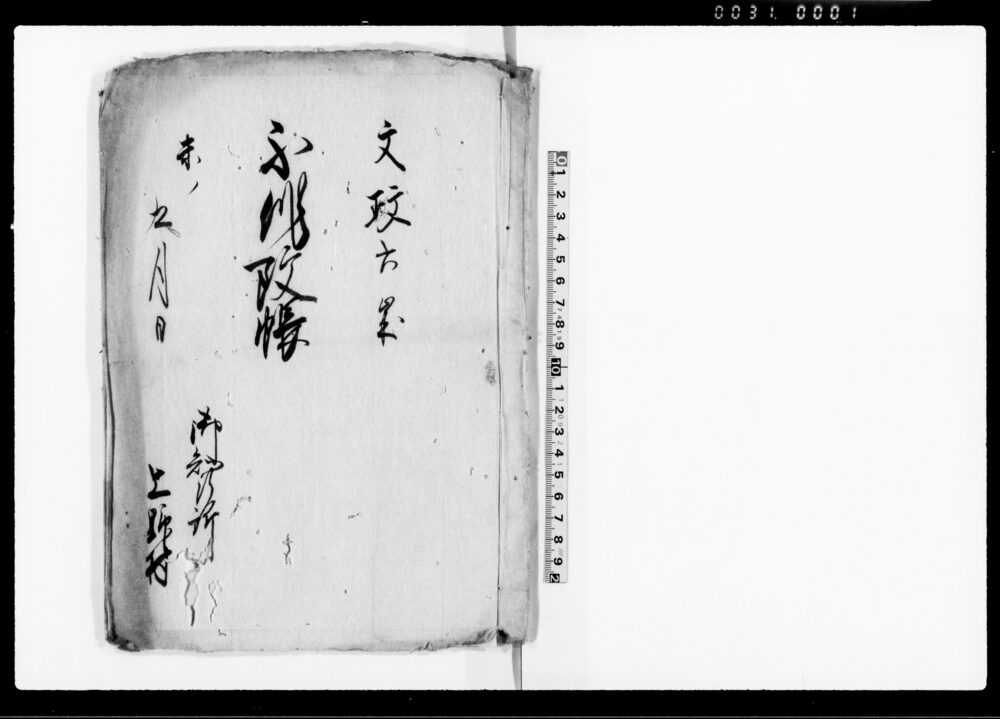 0031 0001
文政六歳
小作改帳
未ノ
九月日
御知行所
上野村
0 1 2 3 4 5 6 7 8 9 10 1 2 3 4 5 6 7 8 9 2